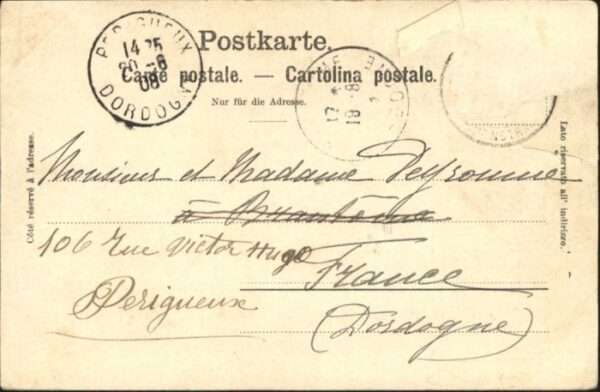 Postkarte.
Carte postale. — Cartolina postale.
Nur für die Adresse.
PERIGUEUX
14 25
20 -8
08
DORDOGNE
17
19 - 8
Côté réservé à l'adresse.
Lato riservato all' indirizzo.
Monsieur et Madame Peyronnie
à Brantôme
106 Rue Victor Hugo
France
Perigueux
(Dordogne)